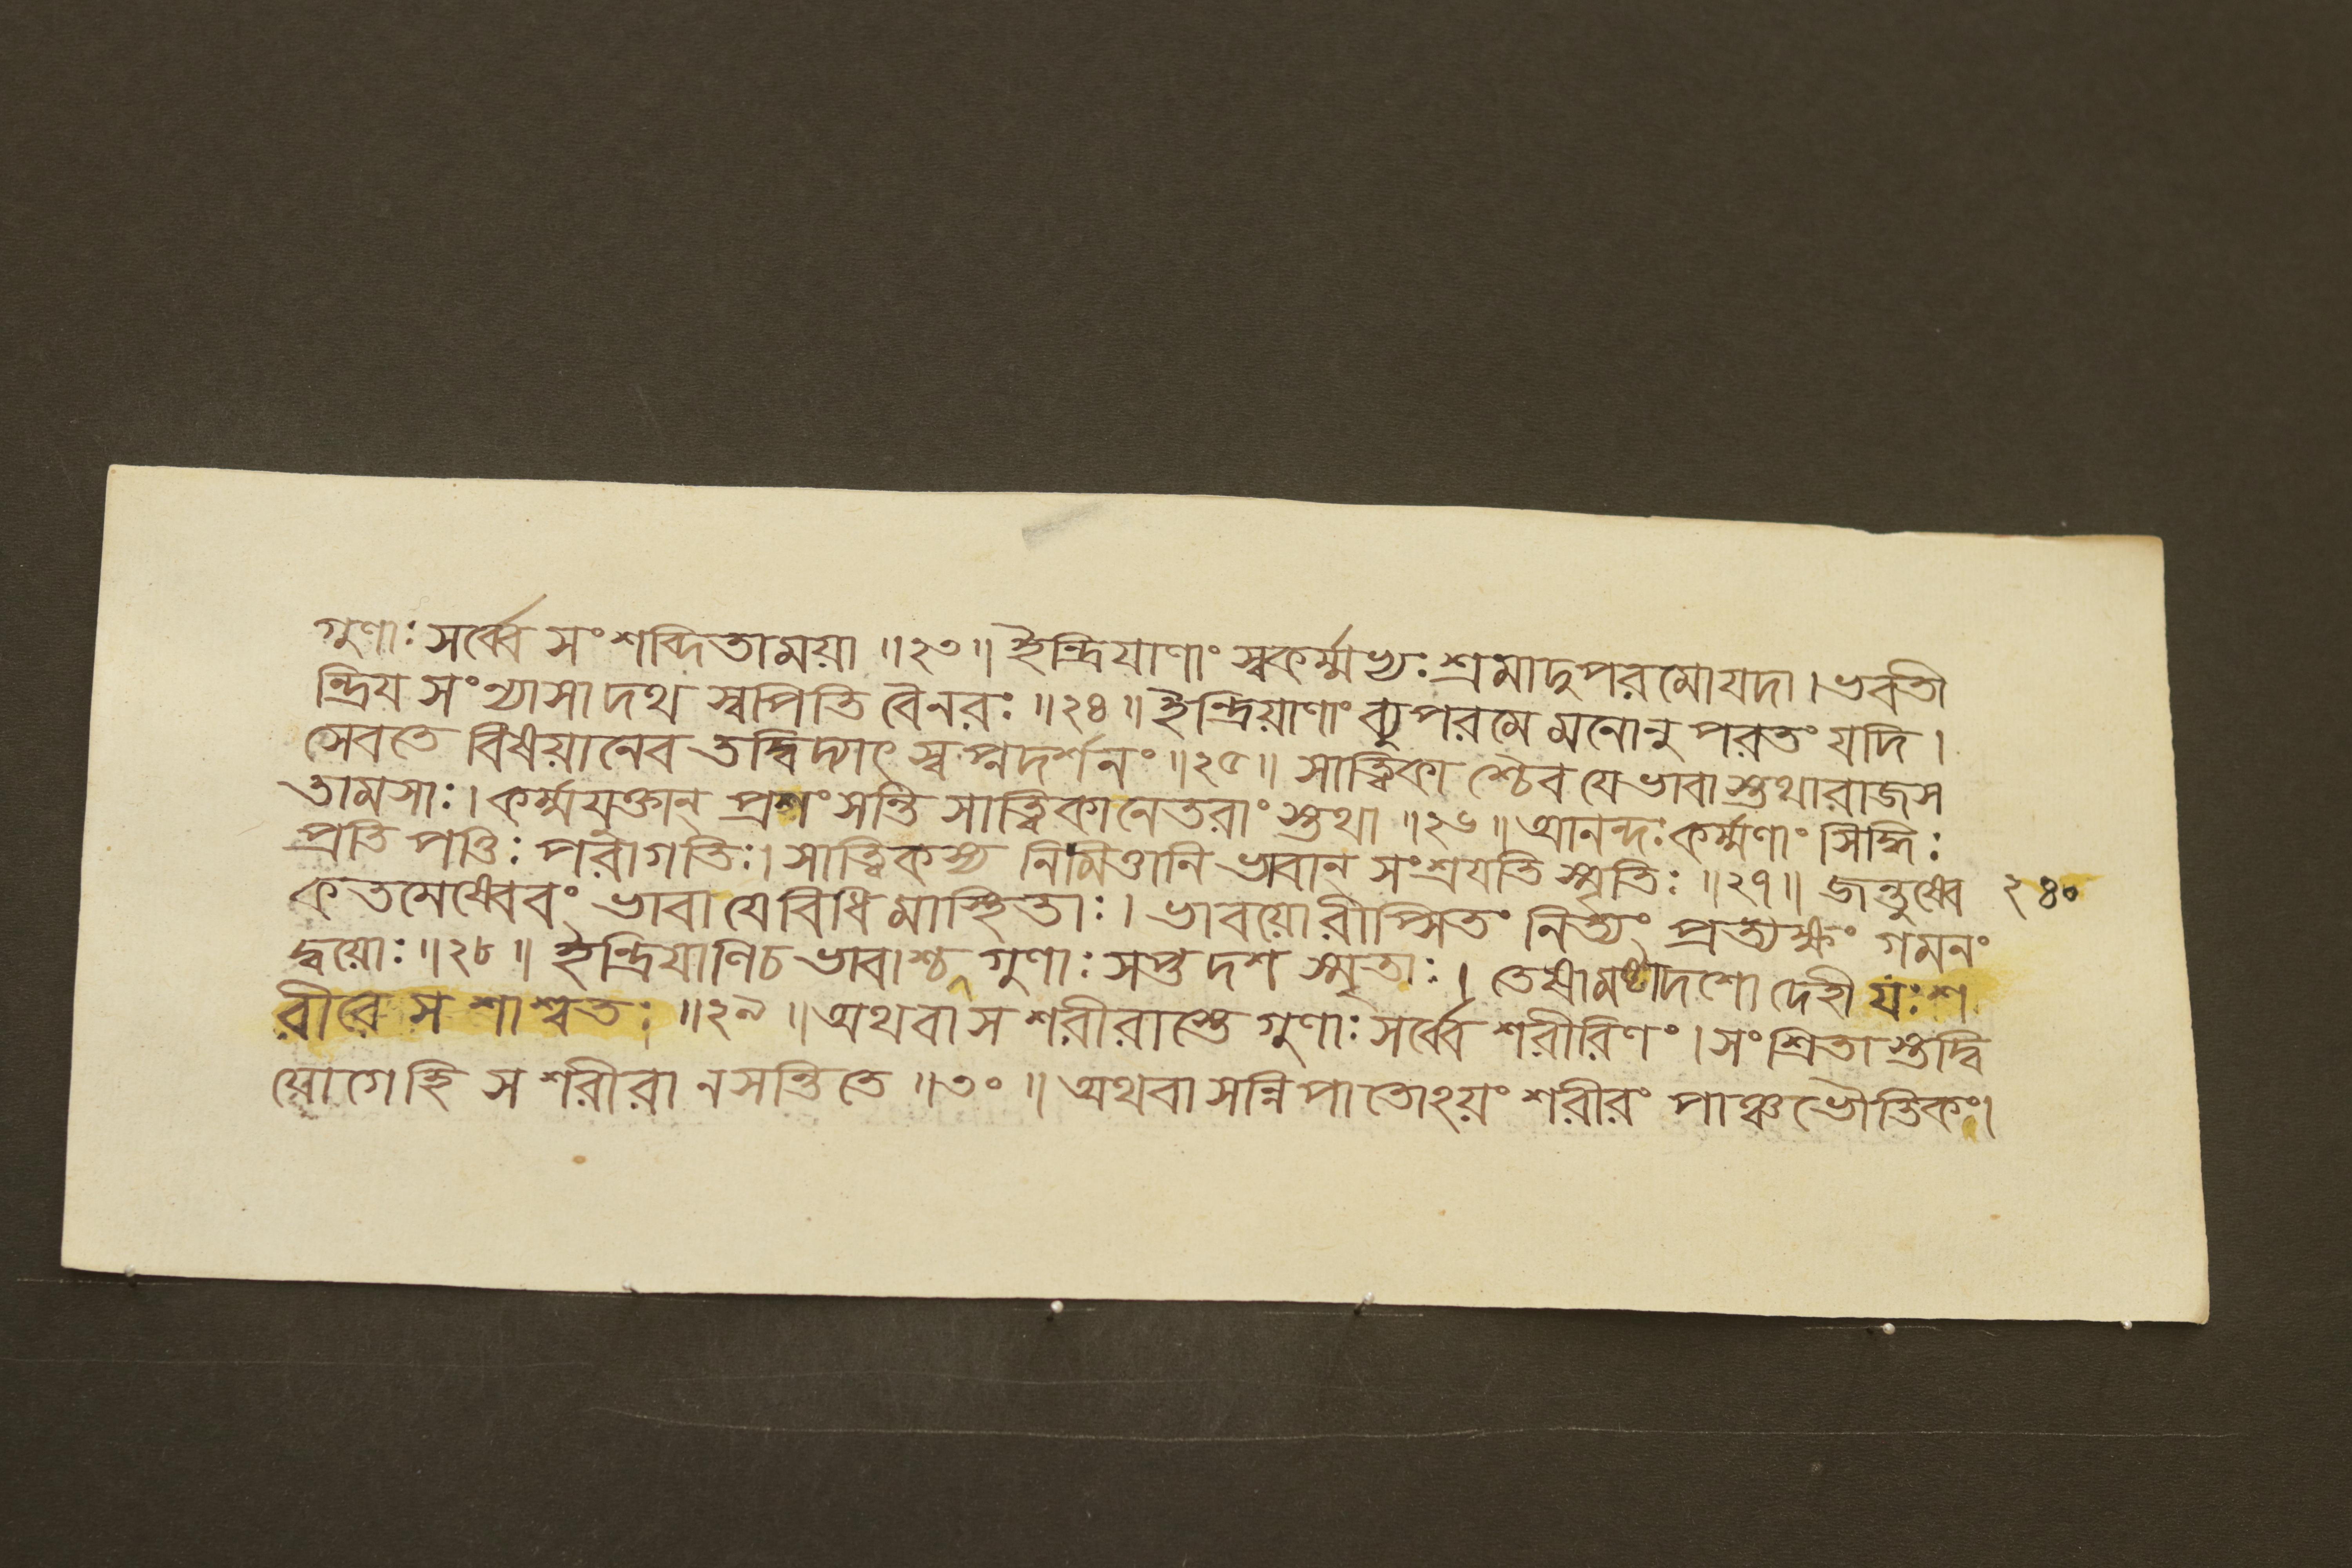 গুণাঃ সর্ব্বে সংশব্দিতাময়া ॥২৩॥ ইন্দ্রিযাণাং স্বকর্ম্মভ্যঃ শ্রমাদুপরমোযদা। ভবতী
ন্দ্রিয সংন্যাসাদথ স্বপিতি বৈনরঃ ॥২৪॥ ইন্দ্রিয়াণাং ব্যুপরমে মনোনু পরতং যদি।
সেবতে বিষয়ানেব তদ্বিদ্যাৎ স্বপ্নদর্শনং ॥২৫॥ সাত্ত্বিকা শ্চৈব যেভাবা স্তথারাজস
তামসাঃ। কর্ম্মযুক্তান্ প্রশংসন্তি সাত্ত্বিকানেতরাং স্তথা ॥২৬॥ আনন্দঃ কর্ম্মণাং সিদ্ধিঃ
প্রতি পত্তিঃ পরাগতিঃ। সাত্ত্বিকস্য নিমিত্তানি ভাবান্ সংশ্রযতি স্মৃতিঃ ॥২৭॥ জন্তুষ্বে ২৪০
কতমেষ্বেবং ভাবা যেবিধিমাস্থিতাঃ। ভাবয়োরীপ্সিতং নিত্যং প্রত্যক্ষং গমনং
দ্বয়োঃ ॥২৮॥ ইন্দ্রিযাণিচ ভাবাশ্চ গুণাঃ সপ্তদশ স্মৃতাঃ। তেষামষ্টাদশো দেহী যঃ শ
রীরে স শাশ্বতঃ ॥২৯॥ অথবা স শরীরাস্তে গুণাঃ সর্ব্বে শরীরিণং। সংশ্রিতা স্তদ্বি
যোগেহি স শরীরা নসন্তিতে ॥৩০॥ অথবা সন্নিপাতোঽয়ং শরীরং পাঞ্চভৌতিকং।